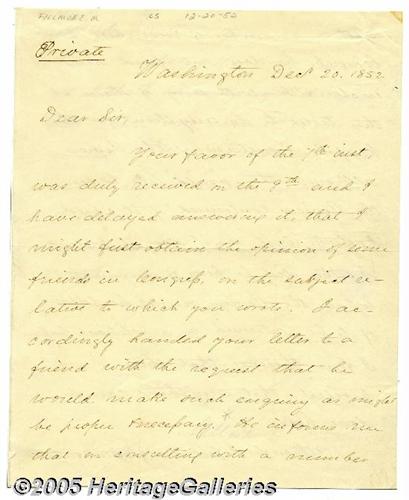 FILLMORE, M LS 12-20-52
Private
Washington Dec. 20. 1852
Dear Sir,
Your favor of the 7th inst,
was duly received on the 9th and I
have delayed answering it, that I
might first obtain the opinion of some
friends in Congress, on the subject re-
lative to which you wrote. I ac-
cordingly handed your letter to a
friend with the request that he
would make such enquiry as might
be proper & necessary. He informs me
that on consulting with a number
©2005 HeritageGalleries